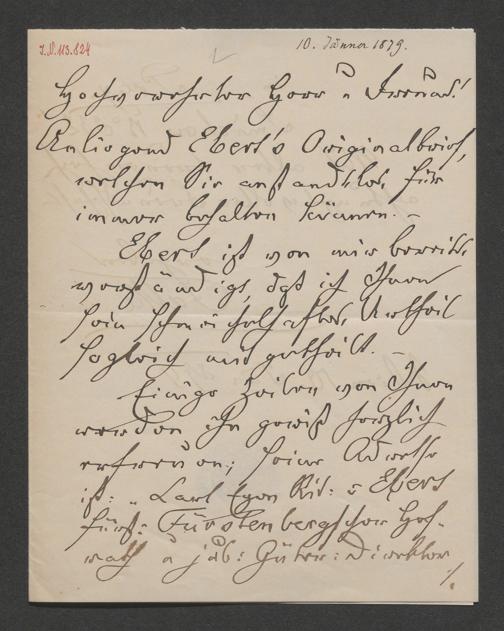 J.N. 113.824
10. Jänner 1879.
Hochverehrter Herr u Freund!
Anliegend Ebert's Originalbrief,
welchen Sie anstandslos für
immer behalten können. –
Ebert ist von mir bereits
verständigt, daß ich Ihnen
sein schmeichelhaftes Urtheil
sogleich mitgetheilt. –
Einige Zeilen von Ihnen
werden ihn gewiß herzlich
erfreuen; seine Adresse
ist: "Carl Egon Rit: v Ebert
fürst: Fürstenberg'scher Hof-
rath u jub: Güter: Direktor
./.